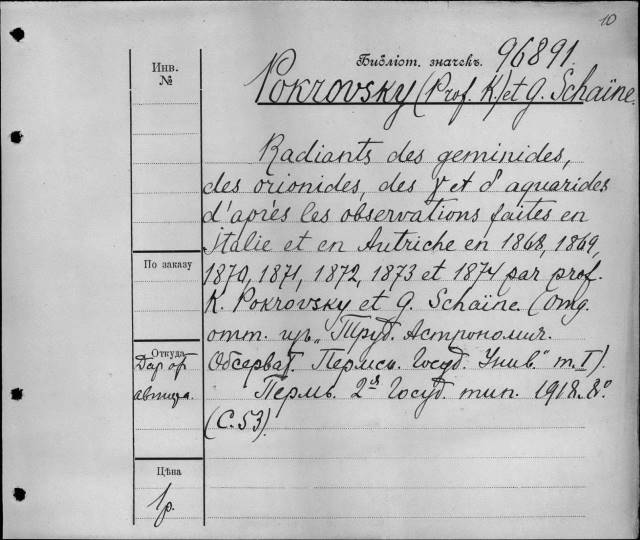 10
Библіот. значекъ. 96891.
Инв.
№
Pokrovsky (Prof. K.) et G. Schaïne.
Radiants des geminides,
des orionides, des γ et δ aquarides
d'après les observations faites en
Italie et en Autriche en 1868, 1869,
1870, 1871, 1872, 1873 et 1874 par prof.
K. Pokrovsky et G. Schaïne. (Отд.
отт. изъ „Труд. Астрономич.
Обсерват. Пермск. Госуд. Унив." т. I).
Пермь. 2ая Госуд. тип. 1918. 8°.
(С. 53).
По заказу
Откуда
Дар от
автора.
Цѣна
1р.